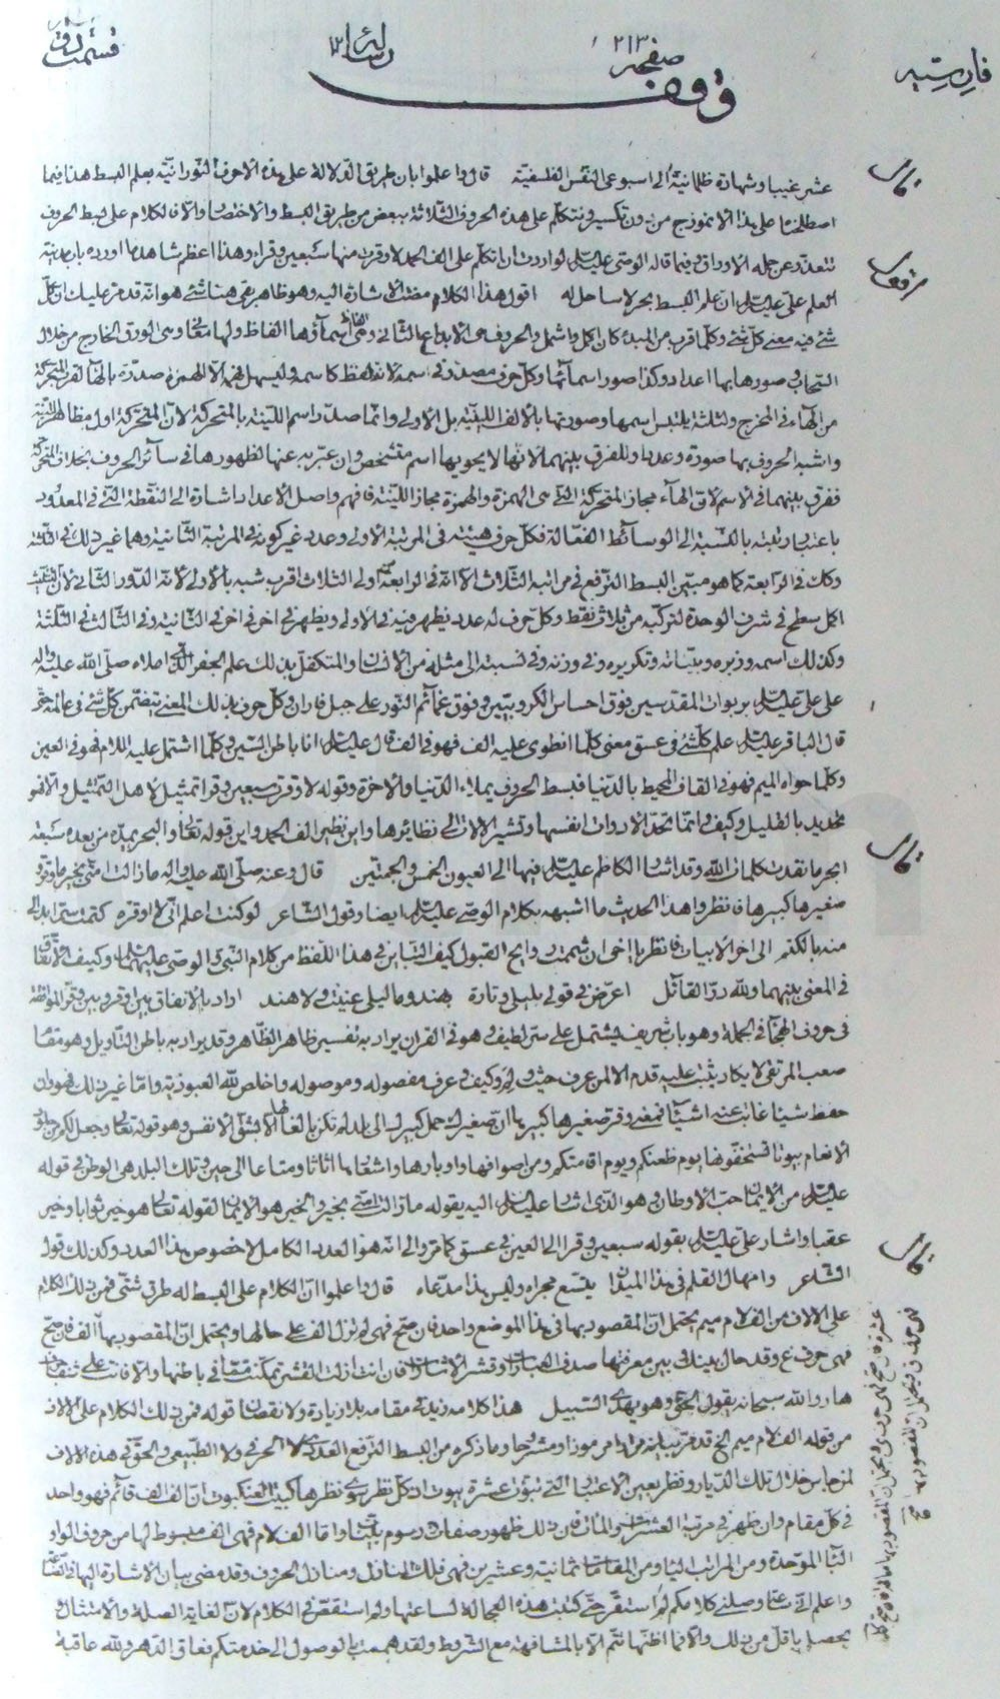 صفحه ٢١٣
رساله ١٢
وقف
عشر غيبا وشهادة ظلمانية الى اسبوعى النفس الفلسفية قال واعلموا بان طريق الدلالة على هذه الاحرف النورانية بعلم البسط هذا فيما
اصطلحنا على هذا الانموذج من دون تكسير ونتكلم على هذه الحروف الثلاثة ببعض من طريق البسط والاختصار والا فالكلام على بسط الحروف
تتعذر عن حمله الاوراق وفيما قاله الوصى عليه السلام لو اردت ان اتكلم على الف الحمد لاوقرت منها سبعين وقرا وهذا اعظم شاهد ما اورده باب مدينة
العلم على عليه السلام ان علم البسط بحر لا ساحل له اقول هذا الكلام مضت الاشارة اليه وهو ظاهر بقى هنا شئ هو انه قد مر عليك ان كل
شئ فيه معنى كل شئ وكلما قرب من المبدء كان اكمل واشمل والحروف هى الابداع الثانى وهى اسماؤها الفاظ ولها معانى وهى الودق الخارج من خلال
السحاب وصورها بها اعداد وكذا صور اسمائها وكل حرف مصدر فى اسمه لانه لفظ كاسمه
من الهاء فى المخرج ولئلا يلتبس اسمها وصورتها بالالف اللينة بل الاولى وانما صدر اسم اللينة بالمتحركة لان المتحركة اول مظاهر اللينة
واشبه الحروف بها صورة وعددا وللفرق بينهما لانها لا يحويها اسم متشخص وان عبر به عنها لظهورها فى سائر الحروف بخلاف المتحركة
ففرق بينهما فى الاسم لان الهاء مجاز المتحركة التى هى الهمزة والهمزة مجاز اللينة فافهم واصل الاعداد اشارة الى النقطة التى فى المعدود
باعتبار رتبته بالنسبة الى الوسائط الفعالة فكل حرف هيئته فى المرتبة الاولى وعدده غير كونه فى المرتبة الثانية وهما غير ذلك فى الثالثة
وكذلك فى الرابعة كما هو مبين البسط الترفع فى مراتبه الثلاث الا انه فى الرابعة اولى الثلاث اقرب شبه بالاولى لانه الدور الثانى
اكمل سطح فى شرف الوحدة لتركبه من ثلاث نقط وكل حرف له عدد يظهر فيه فى الاولى ويظهر فى اخر فى اخر فى الثانية وفى الثالث فى الثالثة
وكذلك اسمه وزبره وبيناته وتكريره وفى وزنه وفى نسبته الى مثله من الافنان والمتكفل بذلك علم الجفر الذى املاه صلى الله عليه واله
على على عليه السلام بربوات المقدسين فوق احساس الكروبيين وفوق غمائم النور على جبل فاران وكل حرف بذلك المعنى يتضمن كل شئ فى عالمه
قال الباقر عليه السلام علم كلشئ فى عسق معنى كلما انطوى عليه الف فهو فى الف قال عليه السلام انا باطن السين وكلما اشتمل عليه اللام فهو فى العين
وكلما حواه الميم فهو فى القاف المحيط بالدنيا فبسط الحروف يملاء الدنيا والاخرة وقوله لاوقرت سبعين وقرا تمثيل لاهل التمثيل والا فهو
تحديد بالقليل وكيف وانما تحد الادوات انفسها وتشير الالات الى نظائرها واين نظير الف الحمد واين قوله تعالى والبحر يمده من بعده سبعة
ابحر ما نفدت كلمات الله وقد اشار الكاظم عليه السلام فيها الى العيون الخمس والجمتين قال وعنه صلى الله عليه واله مازالت امتى بخير ما وقر
صغيرها كبيرها فانظروا هذا الحديث ما اشبهه بكلام الوصى عليه السلام ايضا وقول الشاعر لو كنت اعلم انى ما اوقره كتمت سرا بدا لى
منه بالكتم الى اخر الابيات فانظر يا اخى ان شممت روايح القبول كيف التباين فى هذا اللفظ من كلام النبى والوصى عليهما السلام وكيف الاتفاق
فى المعنى بينهما ولله در القائل اعرض فى قولى بليلى وتارة بهند وما ليلى عنيت ولا هند اراد بالاتفاق بين اوقر وبين وقر الموافقة
فى حروف الهجاء فى الجملة وهو باب شريف يشتمل على سر لطيف وهو فى القران يراد به تفسير ظاهر الظاهر وقد يراد به باطن التاويل وهو مقام
صعب المرتقى لا يكاد يثبت عليه قدم الا لمن عرف حيث ولم وكيف وعرف مفصوله وموصوله واخلص لله العبودية واما غير ذلك فهو وان
حفظ شيئا غابت عنه اشياء فمعنى وقر صغيرها كبيرها ان صغيرك حمل كبيرك الى بلد لم تكن بالغها الا بشق الانفس وهو قوله تعالى وجعل لكم من جلود
الانعام بيوتا تستخفونها يوم ظعنكم ويوم اقامتكم ومن اصوافها واوبارها واشعارها اثاثا ومتاعا الى حين وتلك البلد هى الوطن فى قوله
عليه السلام من الايمان حب الاوطان وهو الذى اشار عليه السلام اليه بقوله مازالت امتى بخير والخير هو الايمان لقوله تعالى هو خير ثوابا وخير
عقبا واشار على عليه السلام بقوله سبعين وقرا الى العين فى عسق كما مر والى انه هو العدد الكامل لا خصوص هذا العدد وكذلك قول
الشاعر وامهال القلم فى هذا الميدان يتسع مجراه وليس هذا مدعاه قال واعلموا ان الكلام على البسط له طرق شتى فمن ذلك الكلام
على الالاف من الف لام ميم يحتمل ان المقصود بها فى هذا الموضع واحد فان صح فهى لم تزل الف على حالها ويحتمل ان المقصود بها الف فان صح
فهى حرف غ وقد حال بينك وبين معرفتها صدف العبارات وقشر الاشارات فان انت ازلت القشر تمكنت مما فى باطنها والا فانت على شفا جرف
هار والله سبحانه يقول الحق وهو يهدى السبيل هذا كلامه زيد فى مقامه بلا زيادة ولا نقصان قوله فمن ذلك الكلام على الالاف
من قوله الف لام ميم الخ قد مر بيانه مرارا مرموزا ومشروحا وما ذكره من البسط الترفع العددى لا الحرفى ولا الطبيعى والحق فى هذه الالاف
لمن جاس خلال تلك الديار ونظر بعين الاعتبار التى تبوئ عشرة بيوت ان كل نظر سوى نظرها كبيت العنكبوت ان الف الف قائم فهو واحد
فى كل مقام وان ظهر فى مرتبة العشرات والمئات فان ذلك ظهور صفات ورسوم بيات واما الف لام فهى الف مبسوط لها من حروف الواو
الثاء الموحدة ومن المراتب الياء ومن المقامات ثمانية وعشرين فهى فلك المنازل ومنازل الحروف وقد مضى بيان الاشارة اليها
واعلم انى ساعة وصلنى كلامكم لم استقر حتى كتبت هذه العجالة لساعتها ولم استقص فى الكلام لان لغاية الصلة والامتثال
يحصل باقل من ذلك والا فما اظنها تتم الا بالمشافهة مع الشروط ولقد هممت بالوصول الى خدمتكم فعاق الدهر ولله عاقبة
قال
اقول
قال
قال